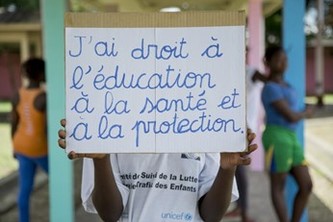 J'ai droit à
l'éducation
à la santé et
à la protection.
de Suivi de la Lutte
Trafic des Enfants
unicef